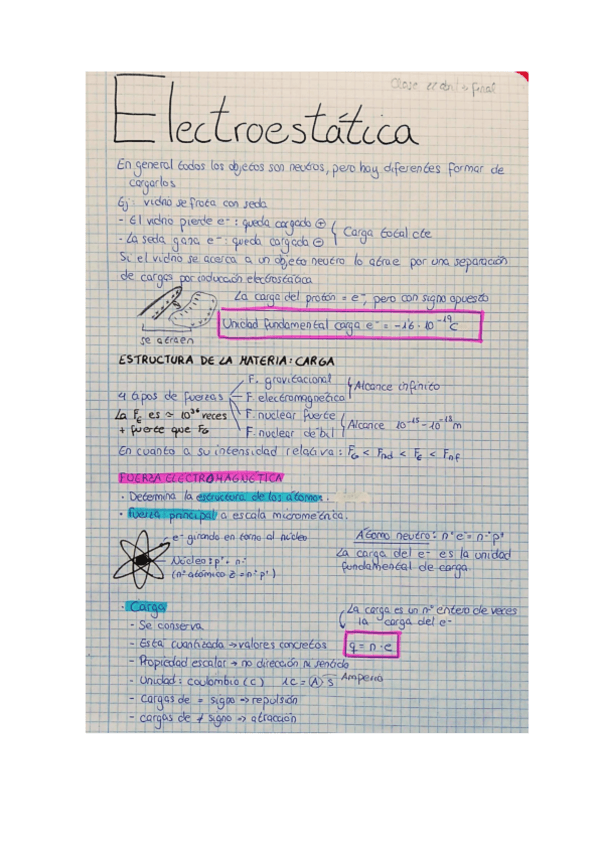 Clase
final
Electroestática
En general todos los objetos son neutros, pero hay diferentes formar de
cargarlos
Ej: vidrio se frota con seda
- El vidrio pierde e⁻: queda cargado ⊕
- La seda gana e⁻: queda cargado ⊖
Carga total cte
Si el vidrio se acerca a un objeto neutro lo atrae por una separación
de cargas por inducción electrostática
se atraen
La carga del protón = e⁻, pero con signo opuesto
Unidad fundamental carga e⁻ = -1'6 · 10⁻¹⁹ C
ESTRUCTURA DE LA MATERIA: CARGA
4 tipos de fuerzas
F. gravitacional
F. electromagnetica
Alcance infinito
F. nuclear fuerte
F. nuclear débil
Alcance 10⁻¹⁵ - 10⁻¹⁸ m
La FE es ≈ 10³⁶ veces
+ fuerte que FG
En cuanto a su intensidad relativa: FG < Fnd < FE < Fnf
FUERZA ELECTROMAGNÉTICA
· Determina la estructura de los átomos.
· Fuerza principal a escala micrométrica.
e⁻ girando en torno al núcleo
Núcleo: p⁺ · n·
(nº atómico z = nº p⁺)
Átomo neutro: nº e⁻ = nº p⁺
La carga del e⁻ es la unidad
fundamental de carga
· Carga
- Se conserva
- Está cuantizada → valores concretos
La carga es un nº entero de veces
la carga del e⁻
q = n · e
- Propiedad escalar → no dirección ni sentido
- Unidad: coulombio (C) 1C = A · s Amperio
- Cargas de = signo → repulsión
- cargas de ≠ signo → atracción